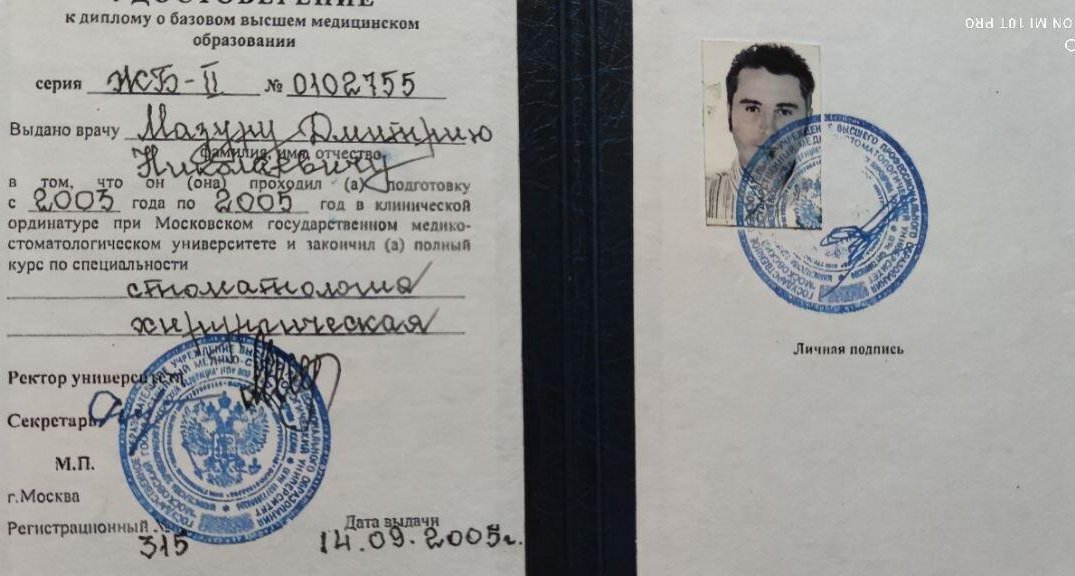 УДОСТОВЕРЕНИЕ
к диплому о базовом высшем медицинском
образовании
серия ЖБ-II № 0102755
Выдано врачу Мазуру Дмитрию
фамилия, имя, отчество
Николаевичу
в том, что он (она) проходил (а) подготовку
с 2003 года по 2005 год в клинической
ординатуре при Московском государственном медико-
стоматологическом университете и закончил (а) полный
курс по специальности
стоматология
хирургическая
Ректор университета
Секретарь
М.П.
г.Москва
Регистрационный №
315
Дата выдачи
14.09.2005г.
Личная подпись
ON MI 10T PRO